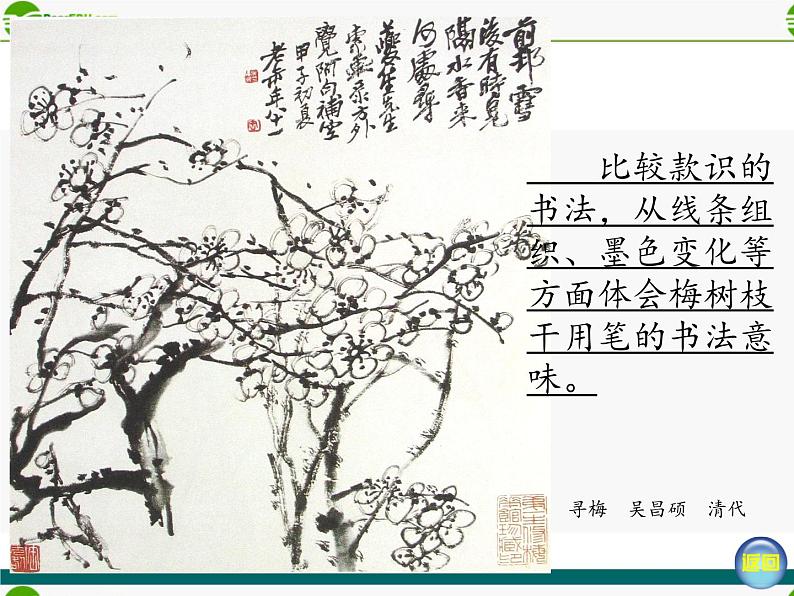 前邨雪
後有時見
隔水香來
何處尋
先生
方外
覺阿句補空
甲子初夏
老缶年八十一
比较款识的
书法，从线条组
织、墨色变化等
方面体会梅树枝
干用笔的书法意
味。
寻梅 吴昌硕 清代
返回